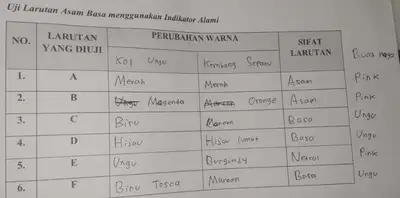 Uji Larutan Asam Basa menggunakan Indikator Alami
NO. LARUTAN YANG DIUJI PERUBAHAN WARNA SIFAT LARUTAN
Kol Ungu Kembang Sepatu
1. A Merah Merah Asam Pink
2. B Magenta Orange Asam Pink
3. C Biru Basa Ungu
4. D Hijau Hijau lumut Basa Ungu
5. E Ungu Burgundy Netral Pink
6. F Biru Tosca Maroon Basa Ungu